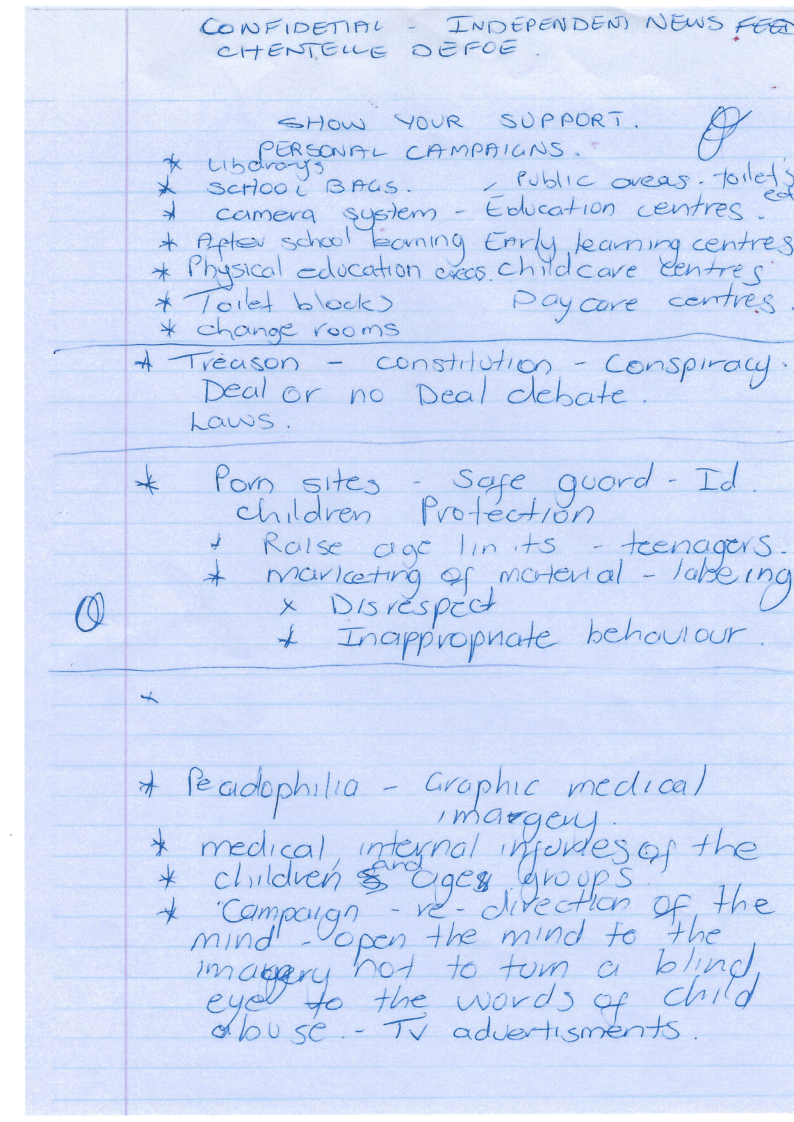 CONFIDETIAL - INDEPENDENT NEWS FEED
CHENTELLE DEFOE.
SHOW YOUR SUPPORT.
PERSONAL CAMPAIGNS.
* Librarys
* SCHOOL BAGS. Public areas. toilet's
* camera system - Education centres.
* After school learning Early learning centres
* Physical education areas. Childcare centres
* Toilet blocks Day care centres.
* change rooms
* Treason - constitution - Conspiracy.
Deal or no Deal debate.
Laws.
* Porn sites - Safe guard - Id.
children Protection
* Raise age limits - teenagers.
* marketing of material - labeing
x Disrespect
* Inappropriate behaviour.
*
* Peadophilia - Graphic medical
imargery.
* medical, internal injuries of the
* children and ages groups
* 'Campaign - re-direction of the
mind' - open the mind to the
imagery not to turn a blind
eye to the words of child
abuse. - TV advertisments.